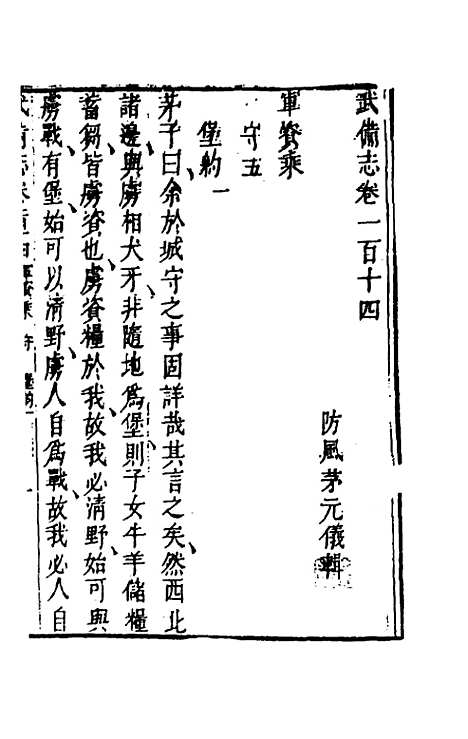 武備志卷一百十四
防風茅元儀輯
軍資乘
守五
堡約一
茅子曰余於城守之事固詳哉其言之矣然西北
諸邊與虜相犬牙非隨地爲堡則子女牛羊儲糧
蓄芻皆虜資也虜資糧於我故我必清野始可與
虜戰有堡始可以清野虜人自爲戰故我必人自
武備志卷一百十四 軍資乘 守 堡約一 一